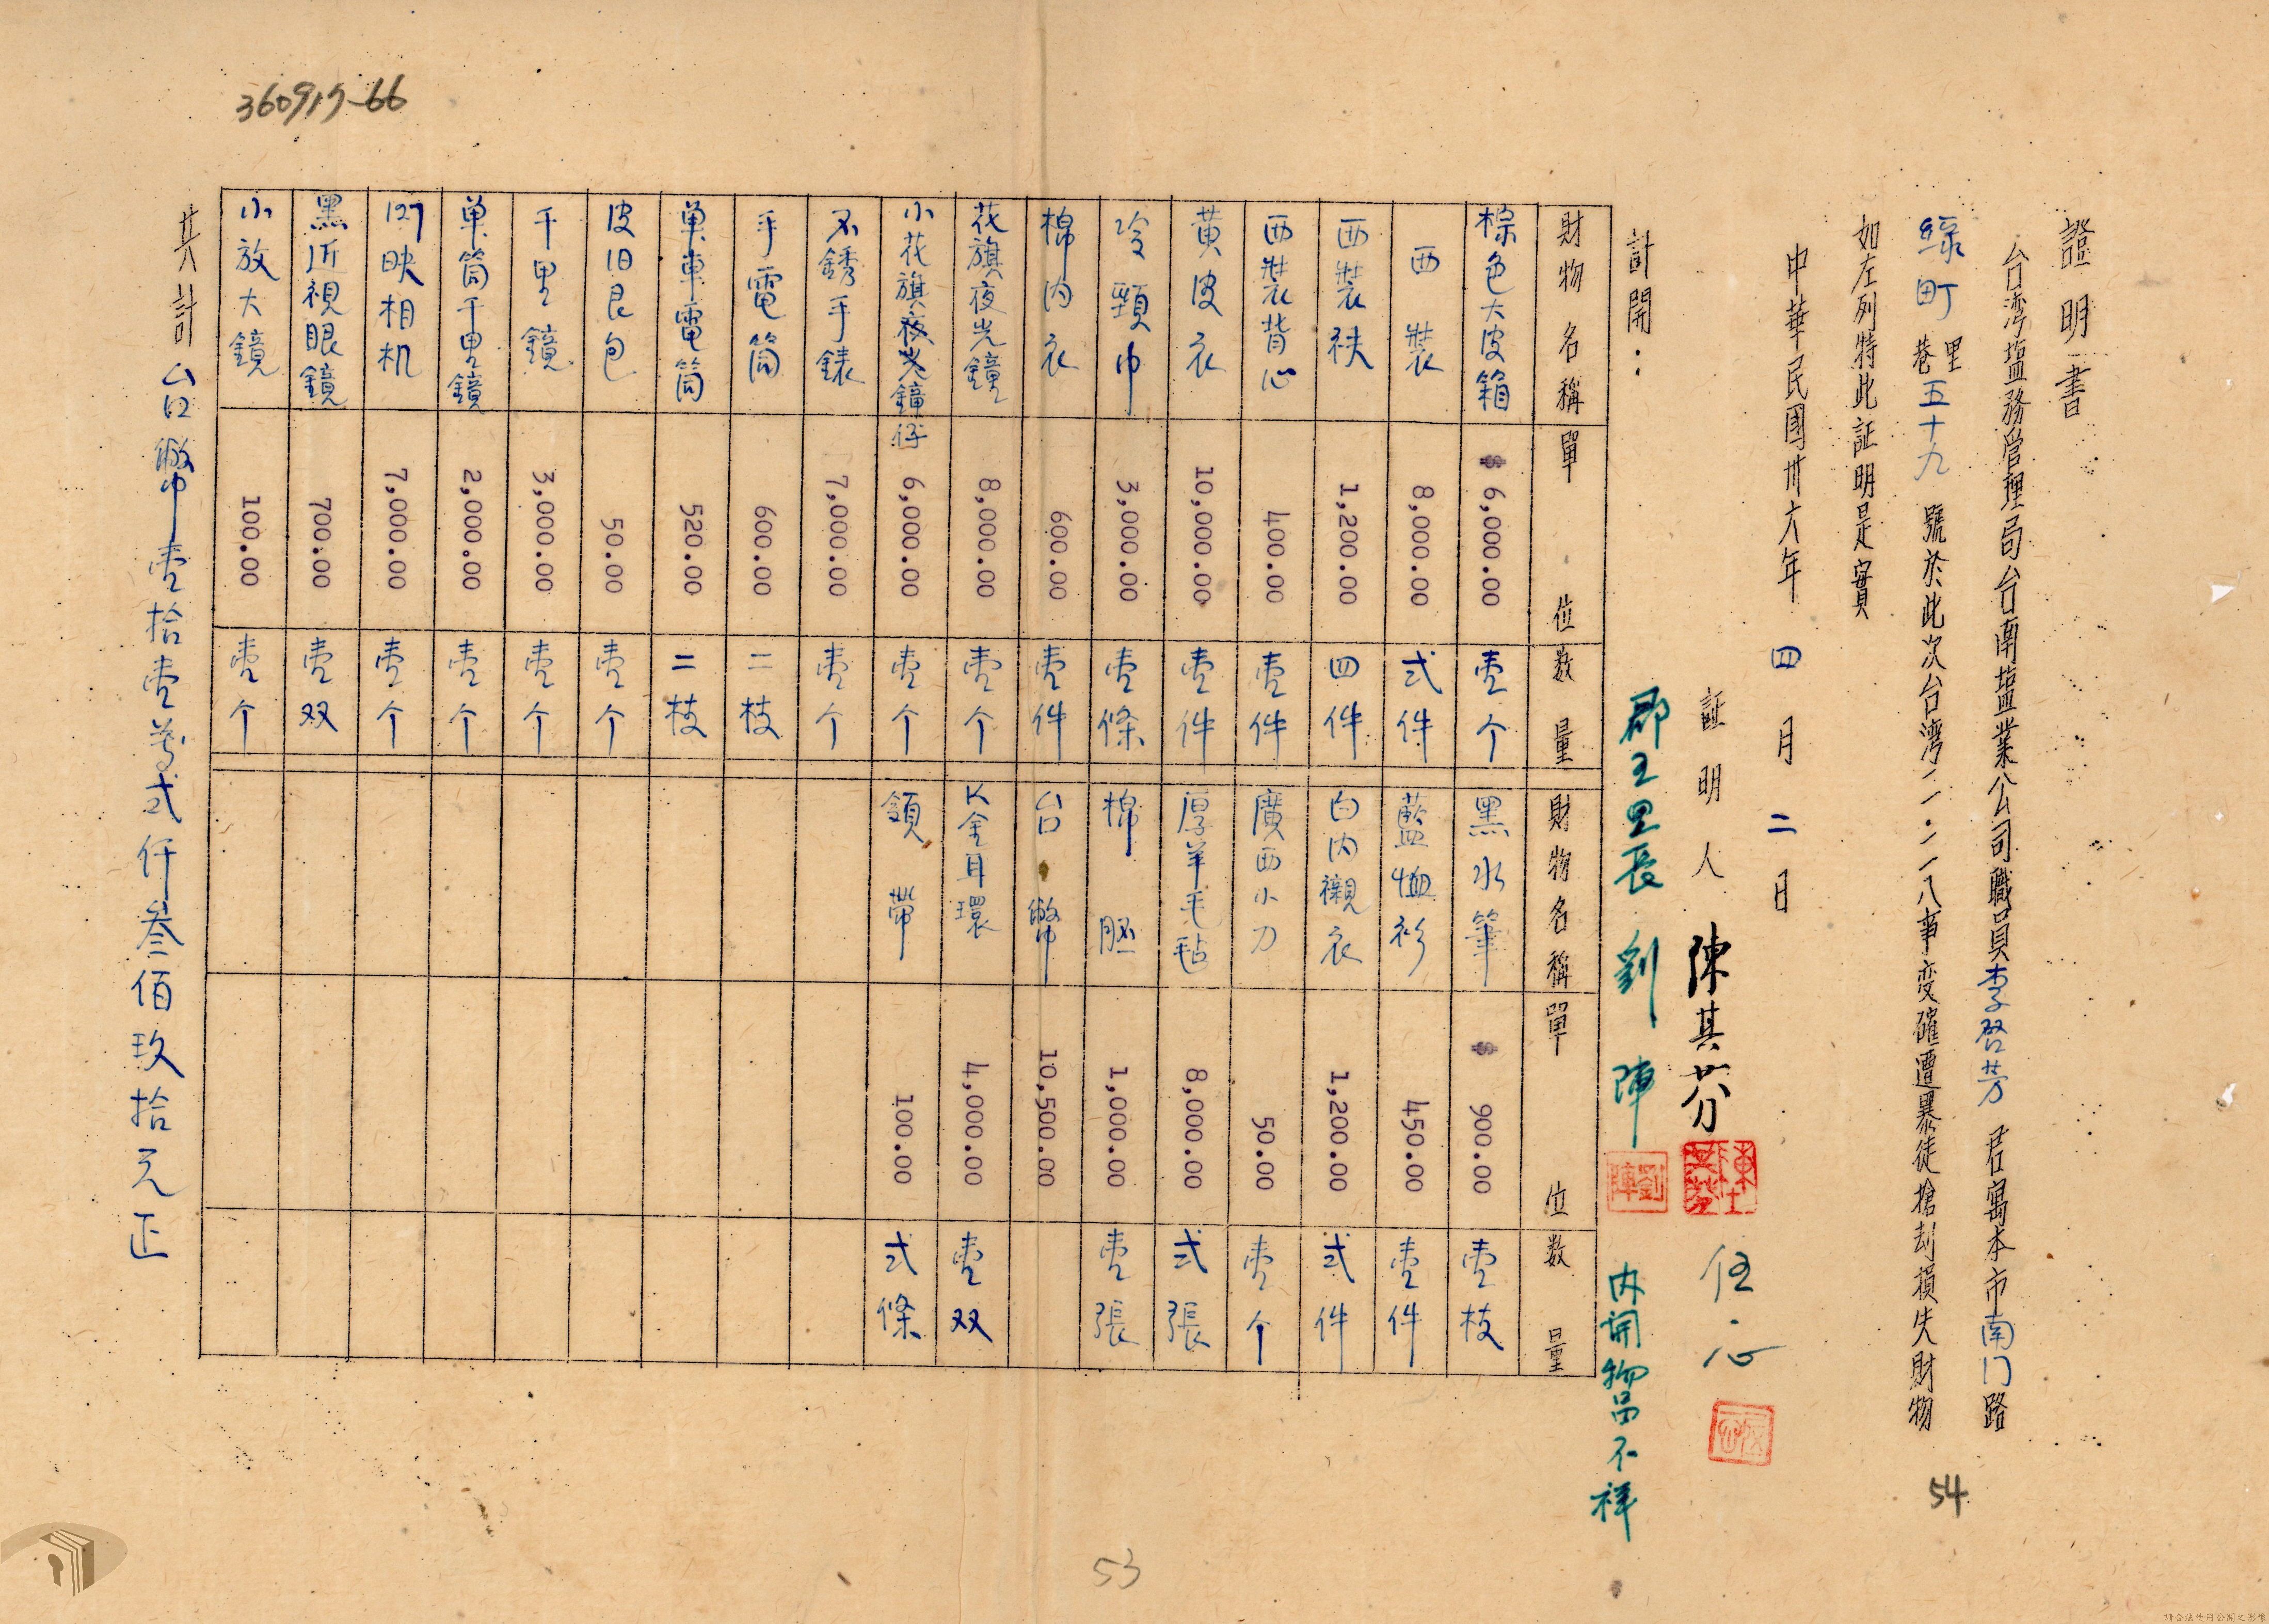 證明書
台湾塩務管理局台南塩業公司職員李啓芳君寓本市南门路
綠町里巷五十九號於此次台湾二・二八事変確遭暴徒搶刦損失財物
如左列特此証明是實
中華民國卅六年四月二日
証明人 陳其芬 任心
郡王里長 劉陣 內開物品不祥
計開：
財物名稱 單位 数量 財物名稱 單位 数量
棕色大皮箱 $6,000.00 壹个 黑水筆 $900.00 壹枝
西裝 8,000.00 弍件 藍恤衫 450.00 壹件
西裝袂 1,200.00 四件 白內襯衣 1,200.00 弍件
西裝背心 400.00 壹件 廣西小刀 50.00 壹个
黄皮衣 10,000.00 壹件 厚羊毛毡 8,000.00 弍張
冷頸巾 3,000.00 壹條 棉胚 1,000.00 壹張
棉內衣 600.00 壹件 台幣 10,500.00
花旗夜光鐘 8,000.00 壹个 K金耳環 4,000.00 壹双
小花旗夜光鐘仔 6,000.00 壹个 領帶 100.00 弍條
不銹手錶 7,000.00 壹个
手電筒 600.00 二枝
単車電筒 520.00 二枝
皮旧艮包 50.00 壹个
千里鏡 3,000.00 壹个
単筒千里鏡 2,000.00 壹个
127映相机 7,000.00 壹个
黑近視眼鏡 700.00 壹双
小放大鏡 100.00 壹个
共計台幣壹拾壹萬弍仟叁佰玖拾元正
360915-66
54
53
請合法使用公開之影像